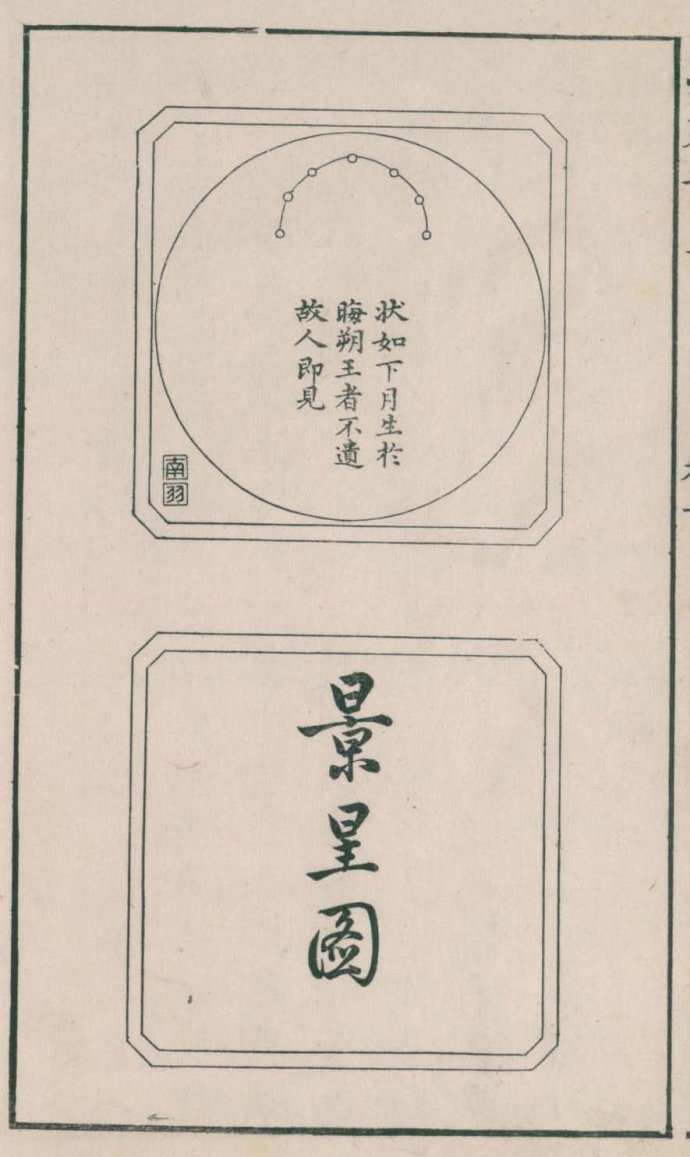 狀如下月生於
晦朔王者不遺
故人即見
南羽
景星圖